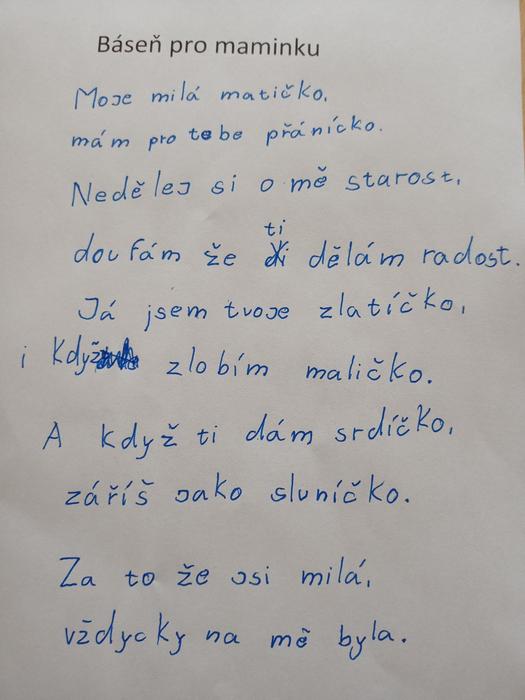 Báseň pro maminku
Moje milá matičko,
mám pro tebe přáníčko.
Nedělej si o mě starost,
doufám že ti dělám radost.
Já jsem tvoje zlatíčko,
i když zlobím maličko.
A když ti dám srdíčko,
záříš jako sluníčko.
Za to že jsi milá,
vždycky na mě byla.